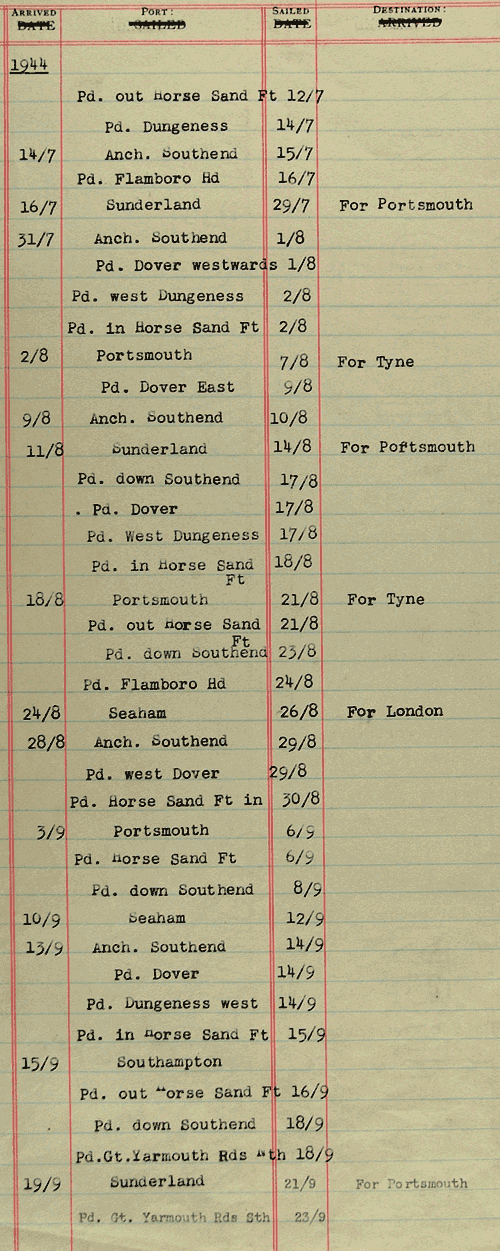 ARRIVED PORT: SAILED DESTINATION:
DATE SAILED DATE ARRIVED
1944
Pd. out Horse Sand Ft 12/7
Pd. Dungeness 14/7
14/7 Anch. Southend 15/7
Pd. Flamboro Hd 16/7
16/7 Sunderland 29/7 For Portsmouth
31/7 Anch. Southend 1/8
Pd. Dover westwards 1/8
Pd. west Dungeness 2/8
Pd. in Horse Sand Ft 2/8
2/8 Portsmouth 7/8 For Tyne
Pd. Dover East 9/8
9/8 Anch. Southend 10/8
11/8 Sunderland 14/8 For Poftsmouth
Pd. down Southend 17/8
. Pd. Dover 17/8
Pd. West Dungeness 17/8
Pd. in Horse Sand 18/8
Ft
18/8 Portsmouth 21/8 For Tyne
Pd. out Horse Sand 21/8
Ft
Pd. down Southend 23/8
Pd. Flamboro Hd 24/8
24/8 Seaham 26/8 For London
28/8 Anch. Southend 29/8
Pd. west Dover 29/8
Pd. Horse Sand Ft in 30/8
3/9 Portsmouth 6/9
Pd. Horse Sand Ft 6/9
Pd. down Southend 8/9
10/9 Seaham 12/9
13/9 Anch. Southend 14/9
Pd. Dover 14/9
Pd. Dungeness west 14/9
Pd. in Horse Sand Ft 15/9
15/9 Southampton
Pd. out Horse Sand Ft 16/9
Pd. down Southend 18/9
Pd.Gt.Yarmouth Rds Nth 18/9
19/9 Sunderland 21/9 For Portsmouth
Pd. Gt. Yarmouth Rds Sth 23/9